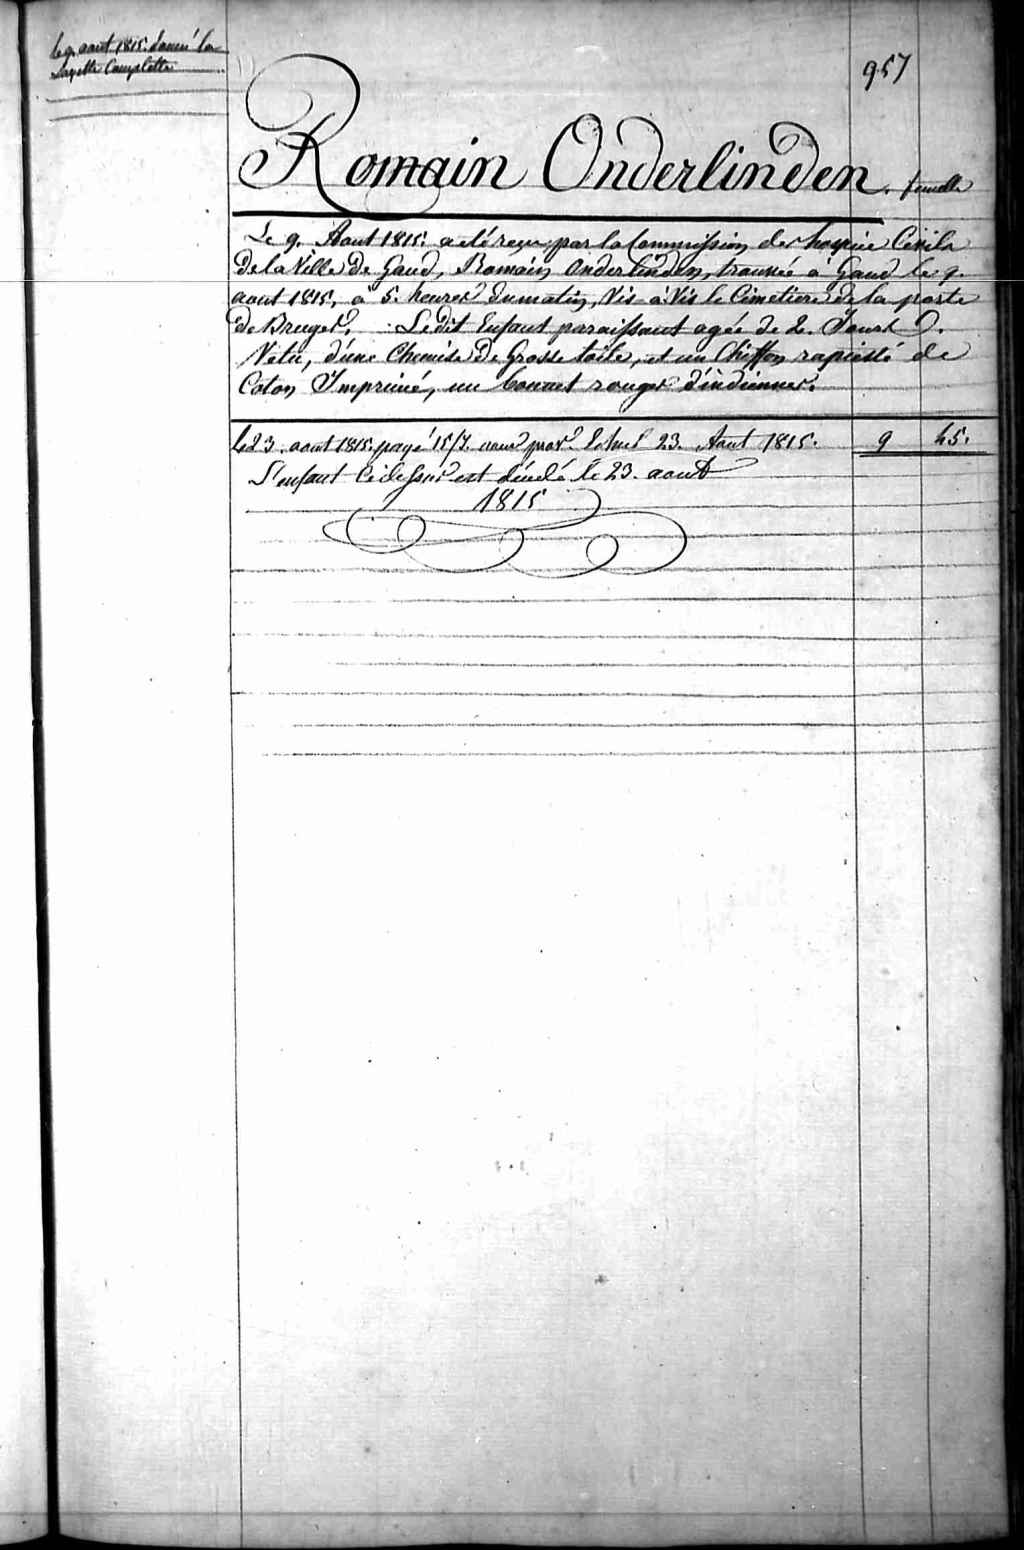 le 9. aout 1815. donné la
Layette Complette
957
Romain Onderlinden. femelle
Le 9. Aout 1815. a été reçu par la Commission des hospice Civils
de la Ville de Gand, Romain Onderlinden, trouvée à Gand le 9.
aout 1815, a 5. heures du matin, Vis-à-Vis le Cimetiere de la porte
de Bruges. Ledit Enfant paraissant agée de 2. Jours.
Vetu, d'une Chemise De Grosse toile, et un Chiffon rapiesté de
Coton Imprimé, un bonnet rouge d'indienne.
le 23. aout 1815. payé 15/7. 23. Aout 1815. 9 45.
L'enfant Cidessus est décédé le 23. aout
1815